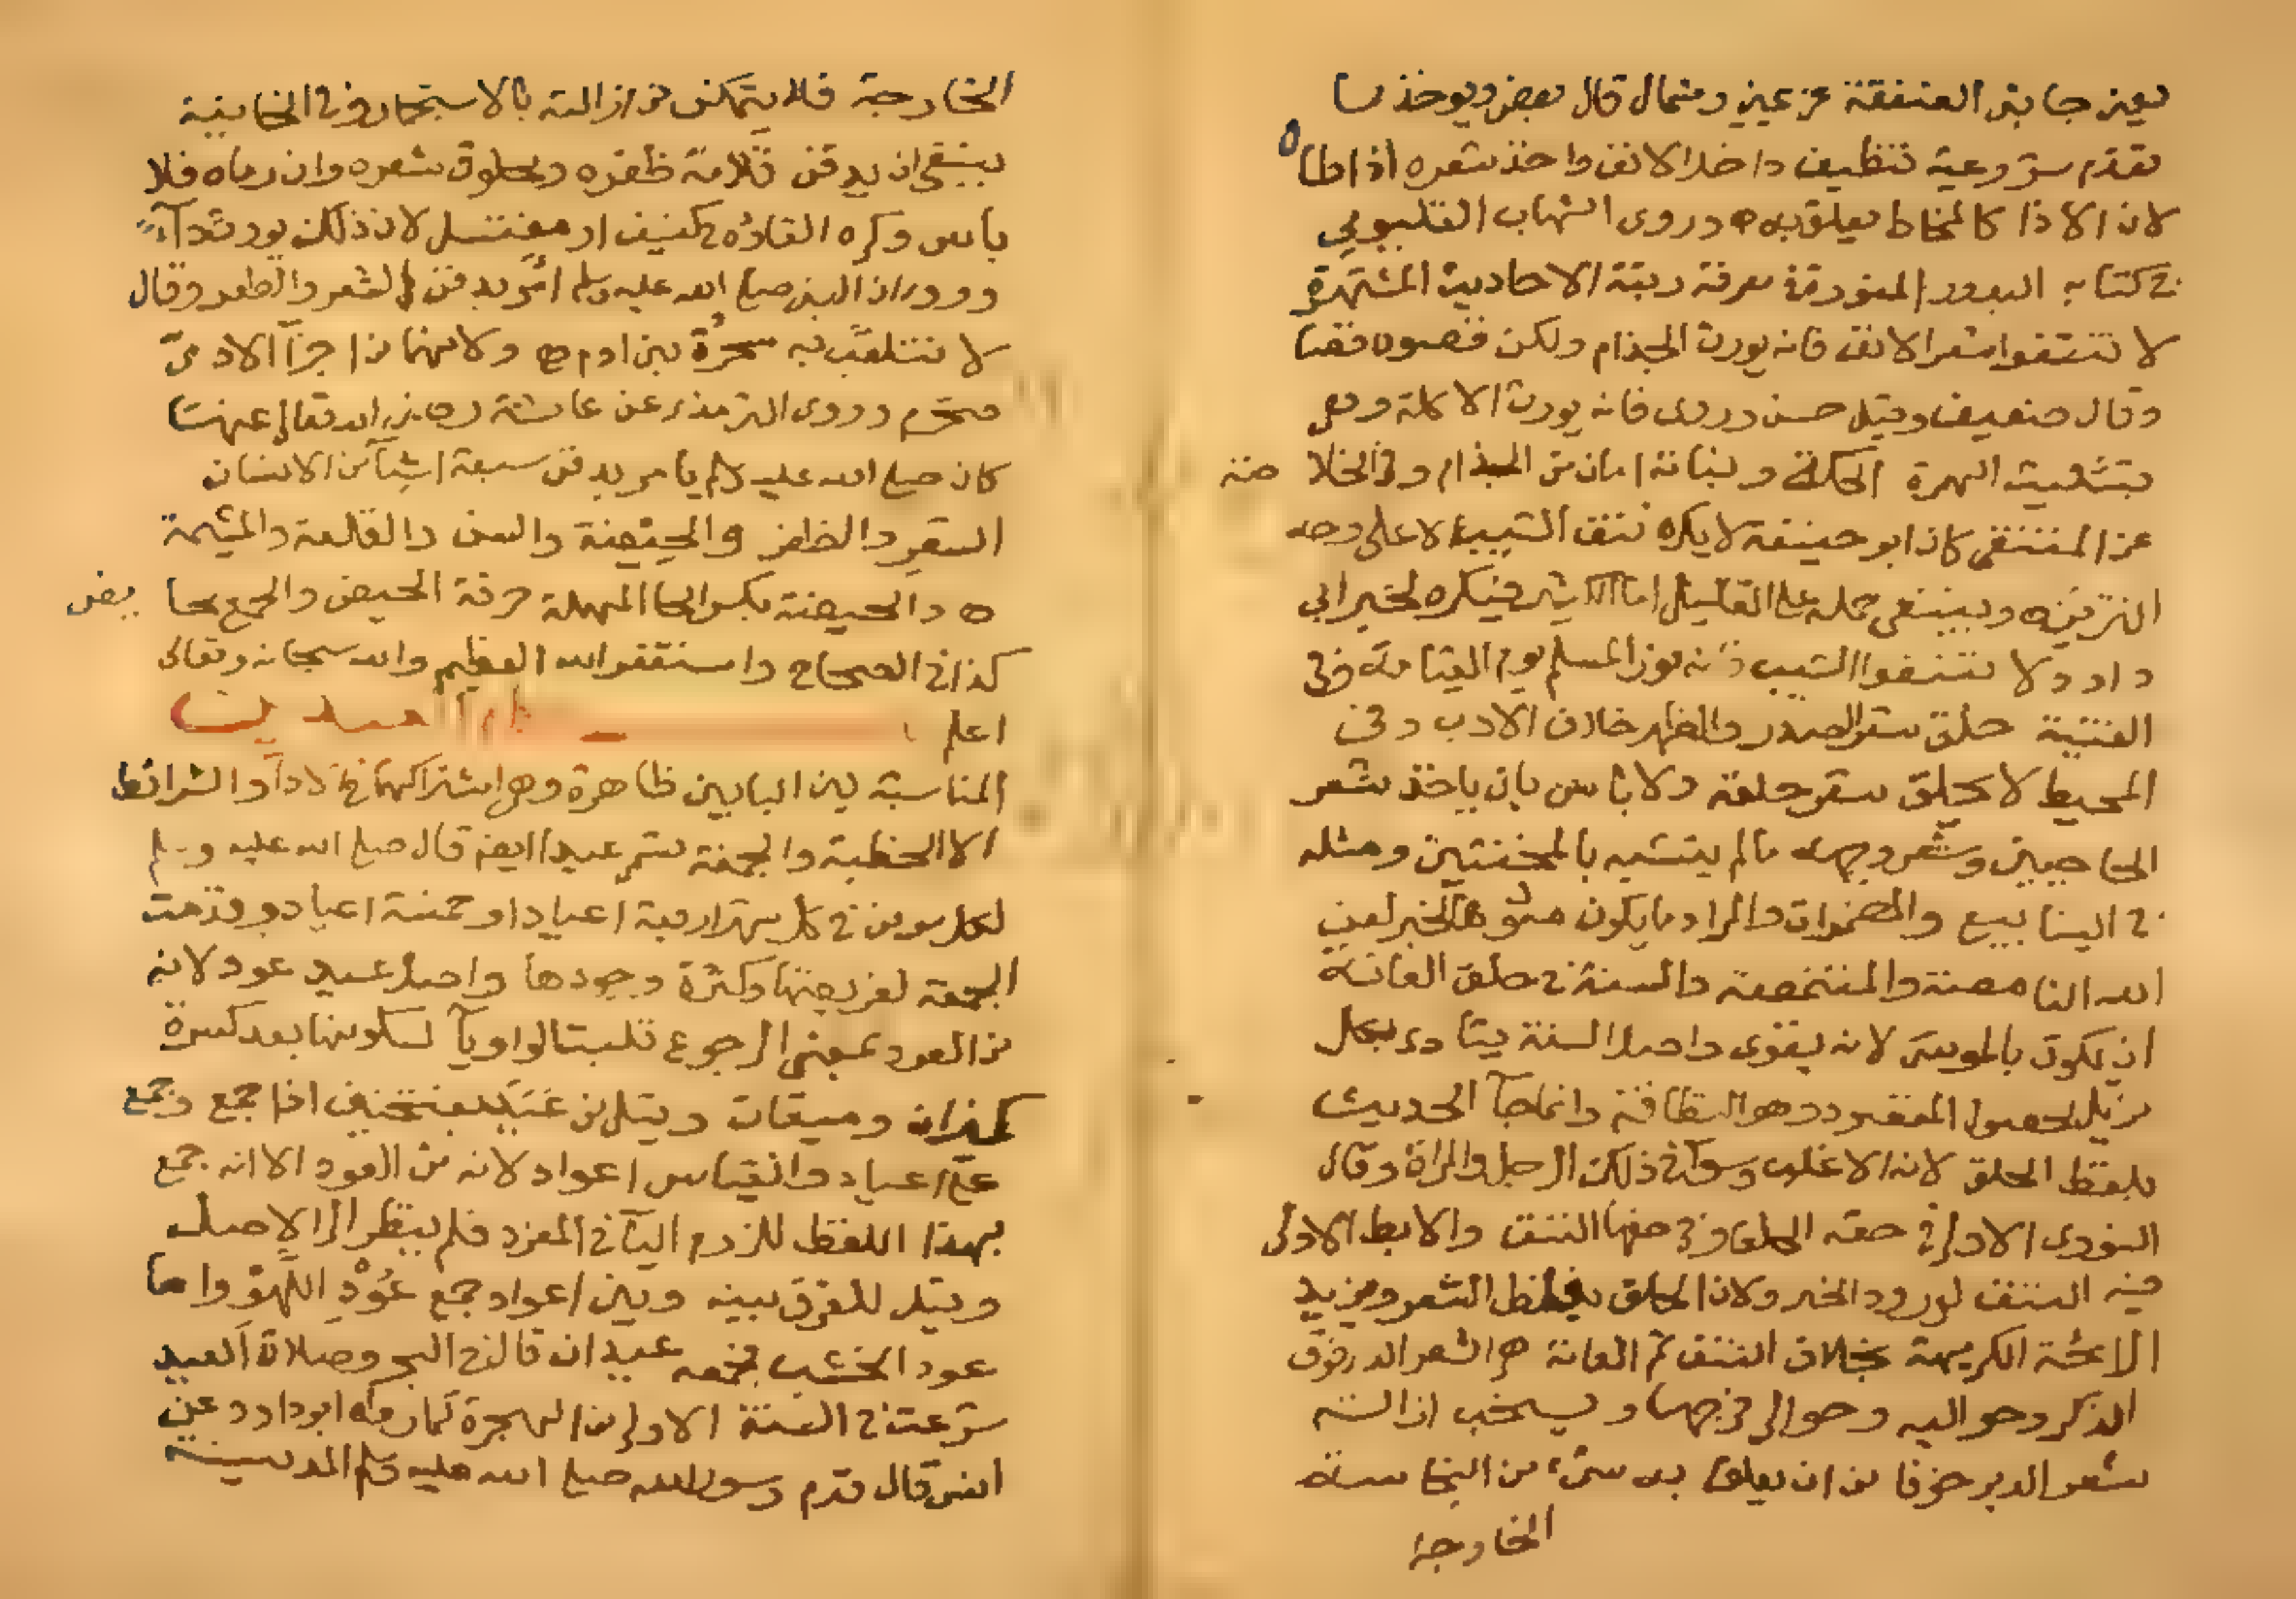 بعين جانبي العنفقة عن يمين وشمال قال بعض ويوخذ مما
تقدم مشروعية تنظيف داخل الانف واخذ شعره اذا طال
لان الاذا كالمخاط يعلق به ه وروى الشهاب القليوبي
في كتابه البدور المنورة في معرفة رتبة الاحاديث المشتهرة
لا تنتفوا شعر الانف فانه يورث الجذام ولكن قصوه قصا
وقال ضعيف وقيل حسن وروى فانه يورث الاكلة وهي
بتثليث الهمزة الحكة ونباته امان من الجذام وفي الخلاصة
عن المنتقى كان ابو حنيفة لا يكره نتف الشيب الا على وجه
التزين ه وينبغي حمله على القليل اما الكثير فيكره لخبر ابي
داود لا تنتفوا الشيب فانه نور المسلم يوم القيامة وفي
القنية حلق شعر الصدر والظهر خلاف الادب وفي
المحيط لا يحلق شعر حلقه ولا باس بان ياخذ شعر
الحاجبين وشعر وجهه ما لم يتشبه بالمخنثين ومثله
في الينابيع والمضمرات والمراد ما يكون مشوها لخبر لعن
الله النامصة والمتنمصة والسنة في حلق العانة
ان يكون بالموسى لانه يقوى واصل السنة يتادى بكل
مزيل لحصول المقصود وهو النظافة وانما جآ الحديث
بلفظ الحلق لانه الاغلب وسوآ في ذلك الرجل والمراة وقال
النووى الاولى في حقه الحلق وفي حقها النتف والابط الاولى
فيه النتف لورود الخبر ولان الحلق يغلظ الشعر ويزيد
الرائحة الكريهة بخلاف النتف ثم العانة هي الشعر الذي فوق
الذكر وحواليه وحوالى فرجها ويستحب ازالة
شعر الدبر خوفا من ان يعلق به شىء من النجاسة
الخارجة
الخارجة فلا يتمكن من ازالته بالاستجمار وفي الخانية
ينبغي ان يدفن قلامة ظفره ومحلوق شعره وان رماه فلا
باس وكره القاؤه في كنيف او مغتسل لان ذلك يورث دآ
وورد ان النبي صلى الله عليه وسلم امر بدفن الشعر والظفر وقال
لا تتلعب به سحرة بني ادم ه ولانهما من اجزآ الادمي
محترم وروى الترمذي عن عائشة رضي الله تعالى عنها
كان صلى الله عليه وسلم يامر بدفن سبعة اشيآ من الانسان
الشعر والظفر والحيضة والسن والقلفة والمشيمة
ه والحيضة بكسر الحا المهملة خرقة الحيض والجمع محايض
كذا في الصحاح واستغفر الله العظيم والله سبحانه وتعالى
اعلم باب العيدين
المناسبة بين البابين ظاهرة وهي اشتراكهما في الادآ والشرائط
الا الخطبة والجمعة تسمى عيدا ايضا قال صلى الله عليه وسلم
لكل مومن في كل شهر اربعة اعياد او خمسة اعياد وقدمت
الجمعة لفريضتها وكثرة وجودها واصل عيد عود لانه
من العود بمعنى الرجوع قلبت الواو يآ لسكونها بعد كسرة
كميزان وميقات وقيل من عيد بفتحتين اذا جمع وجمع
على اعياد والقياس اعواد لانه من العود الا انه جمع
بهذا اللفظ للزوم اليآ في المفرد فلم ينظر الى الاصل
وقيل للفرق بينه وبين اعواد جمع عُوْدِ اللهو واما
عود الخشب فجمعه عيدان قال في البحر وصلاة العيد
شرعت في السنة الاولى من الهجرة كما رواه ابو داود عن
انس قال قدم رسول الله صلى الله عليه وسلم المدينة